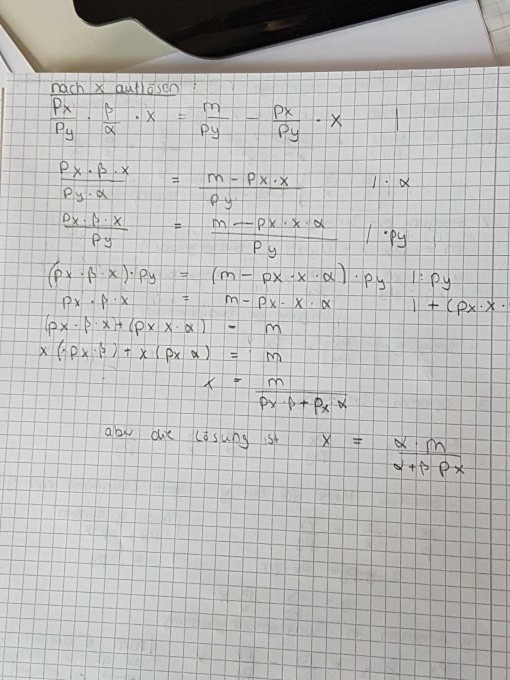 nach x auflösen:
Px/Py · β/α · x = m/py - Px/Py · x |
Px · β · x / Py · α = m - Px · x / Py | : α
Px · β · x / Py = m - px · x · α / Py | · py
(px · β · x) · py = (m - px · x · α) · py | : py
px · β · x = m - px · x · α | + (px · x ·
(px · β · x) + (px · x · α) = m
x (px · β) + x (px · α) = m
x = m / px · β + px · α
aber die Lösung ist x = α · m / α + β · px